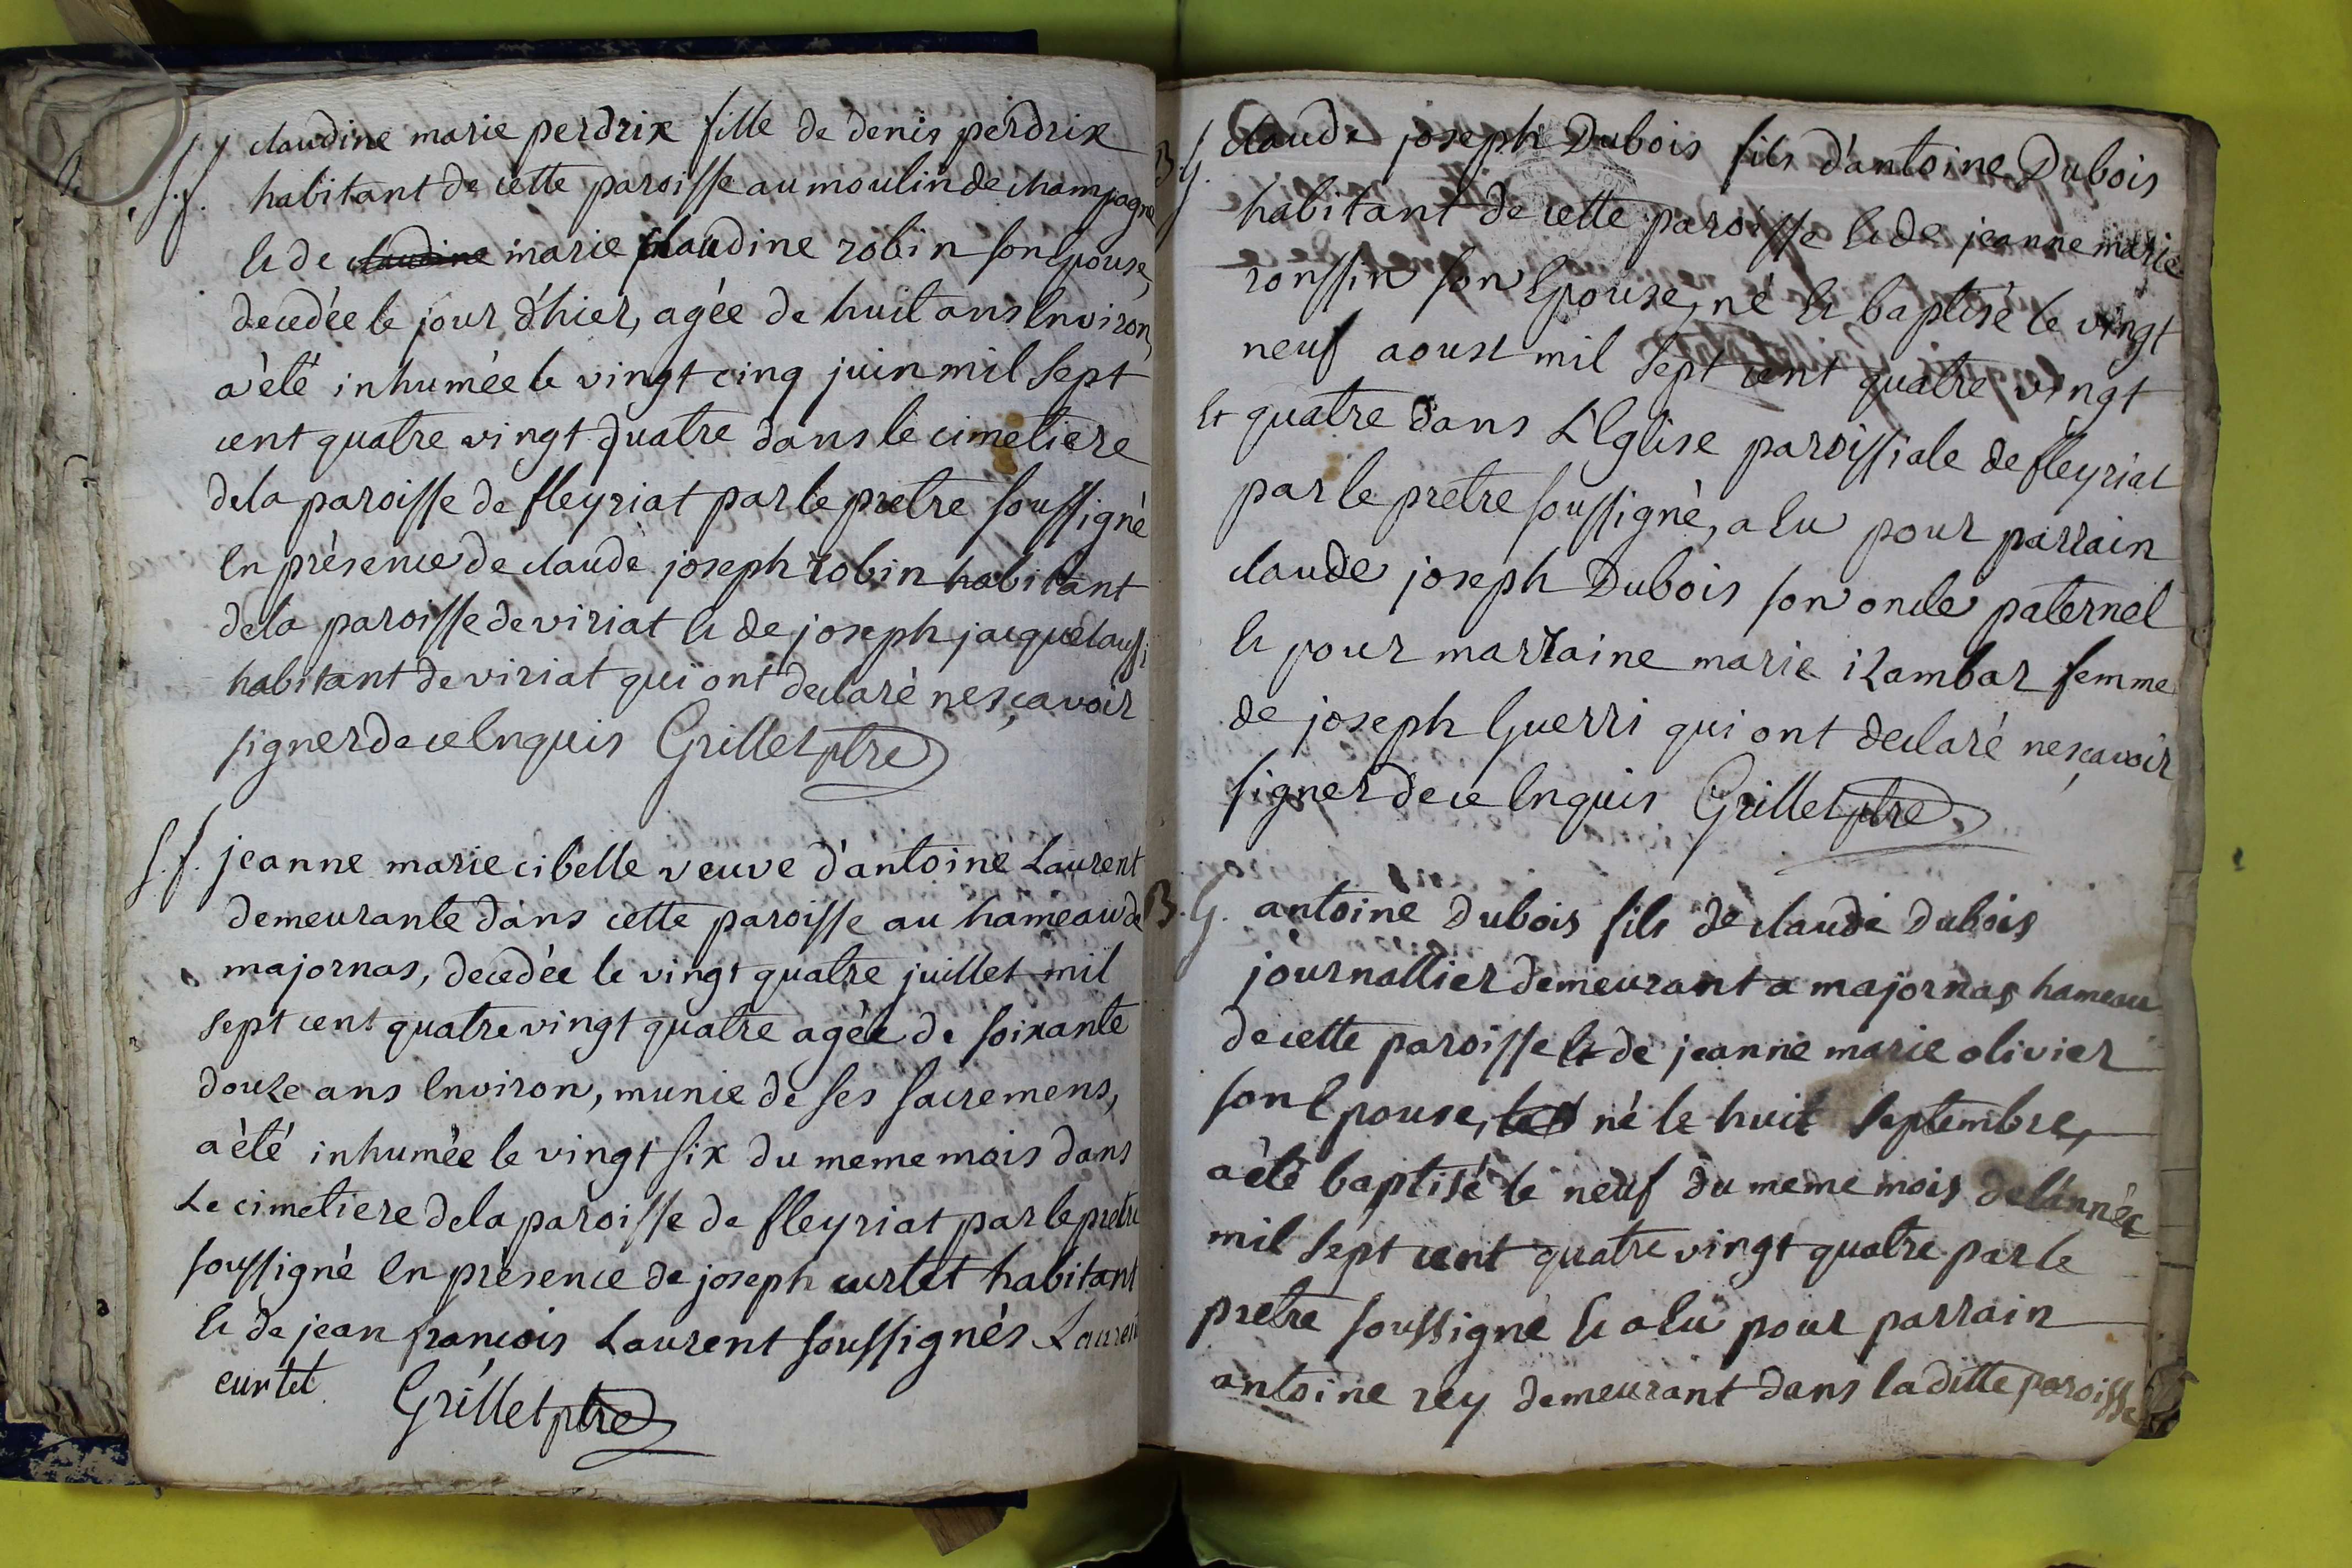 S.f. claudine marie perdrix fille de denis perdrix
habitant de cette paroisse au moulin de champagne
et de claudine marie claudine robin son epouse,
decedée le jour d'hier, agée de huit ans environ,
a été inhumée le vingt cinq juin mil sept
cent quatre vingt quatre dans le cimetiere
de la paroisse de fleyriat par le pretre soussigné
en présence de claude joseph robin habitant
de la paroisse de viriat et de joseph jacquet aussi
habitant de viriat qui ont declaré ne sçavoir
signer de ce enquis Grillet ptre
S.f. jeanne marie cibelle veuve d'antoine Laurent
demeurante dans cette paroisse au hameau de
majornas, decedée le vingt quatre juillet mil
sept cent quatre vingt quatre agée de soixante
douze ans environ, munie de ses sacremens,
a été inhumée le vingt six du meme mois dans
Le cimetiere de la paroisse de fleyriat par le pretre
soussigné en présence de joseph curtet habitant
et de jean francois Laurent soussignés Laurent
curtet Grillet ptre
B.G. claude joseph Dubois fils d'antoine Dubois
habitant de cette paroisse et de jeanne marie
ronssin son epouse, né et baptisé le vingt
neuf aoust mil sept cent quatre vingt
et quatre dans L'Eglise paroissiale de fleyriat
par le pretre soussigné, a eu pour parrain
claude joseph Dubois son oncle paternel
et pour marraine marie izambar femme
de joseph Guerri qui ont declaré ne sçavoir
signer de ce enquis Grillet ptre
B.G. antoine Dubois fils de claude Dubois
journallier demeurant a majornas hameau
de cette paroisse et de jeanne marie olivier
son epouse, né le huit septembre,
a été baptisé le neuf du meme mois de l'année
mil sept cent quatre vingt quatre par le
pretre soussigné et a eu pour parrain
antoine rey demeurant dans la ditte paroisse